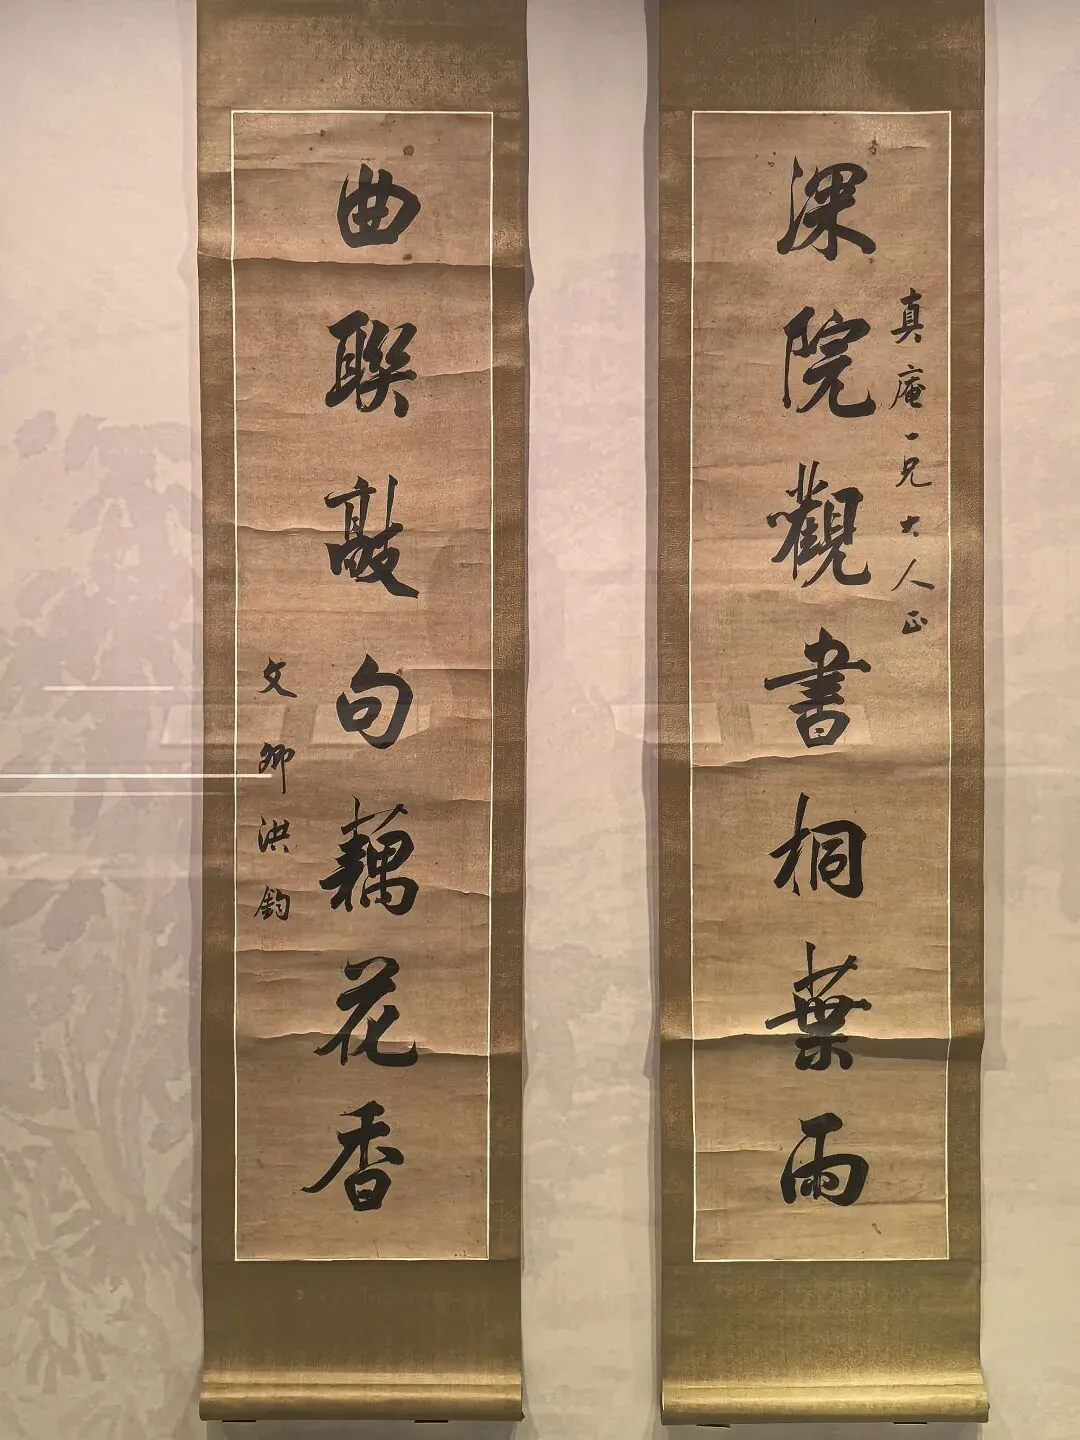 深院觀書桐葉雨
真庵一兄大人正
曲聯敲句藕花香
文卿洪鈞